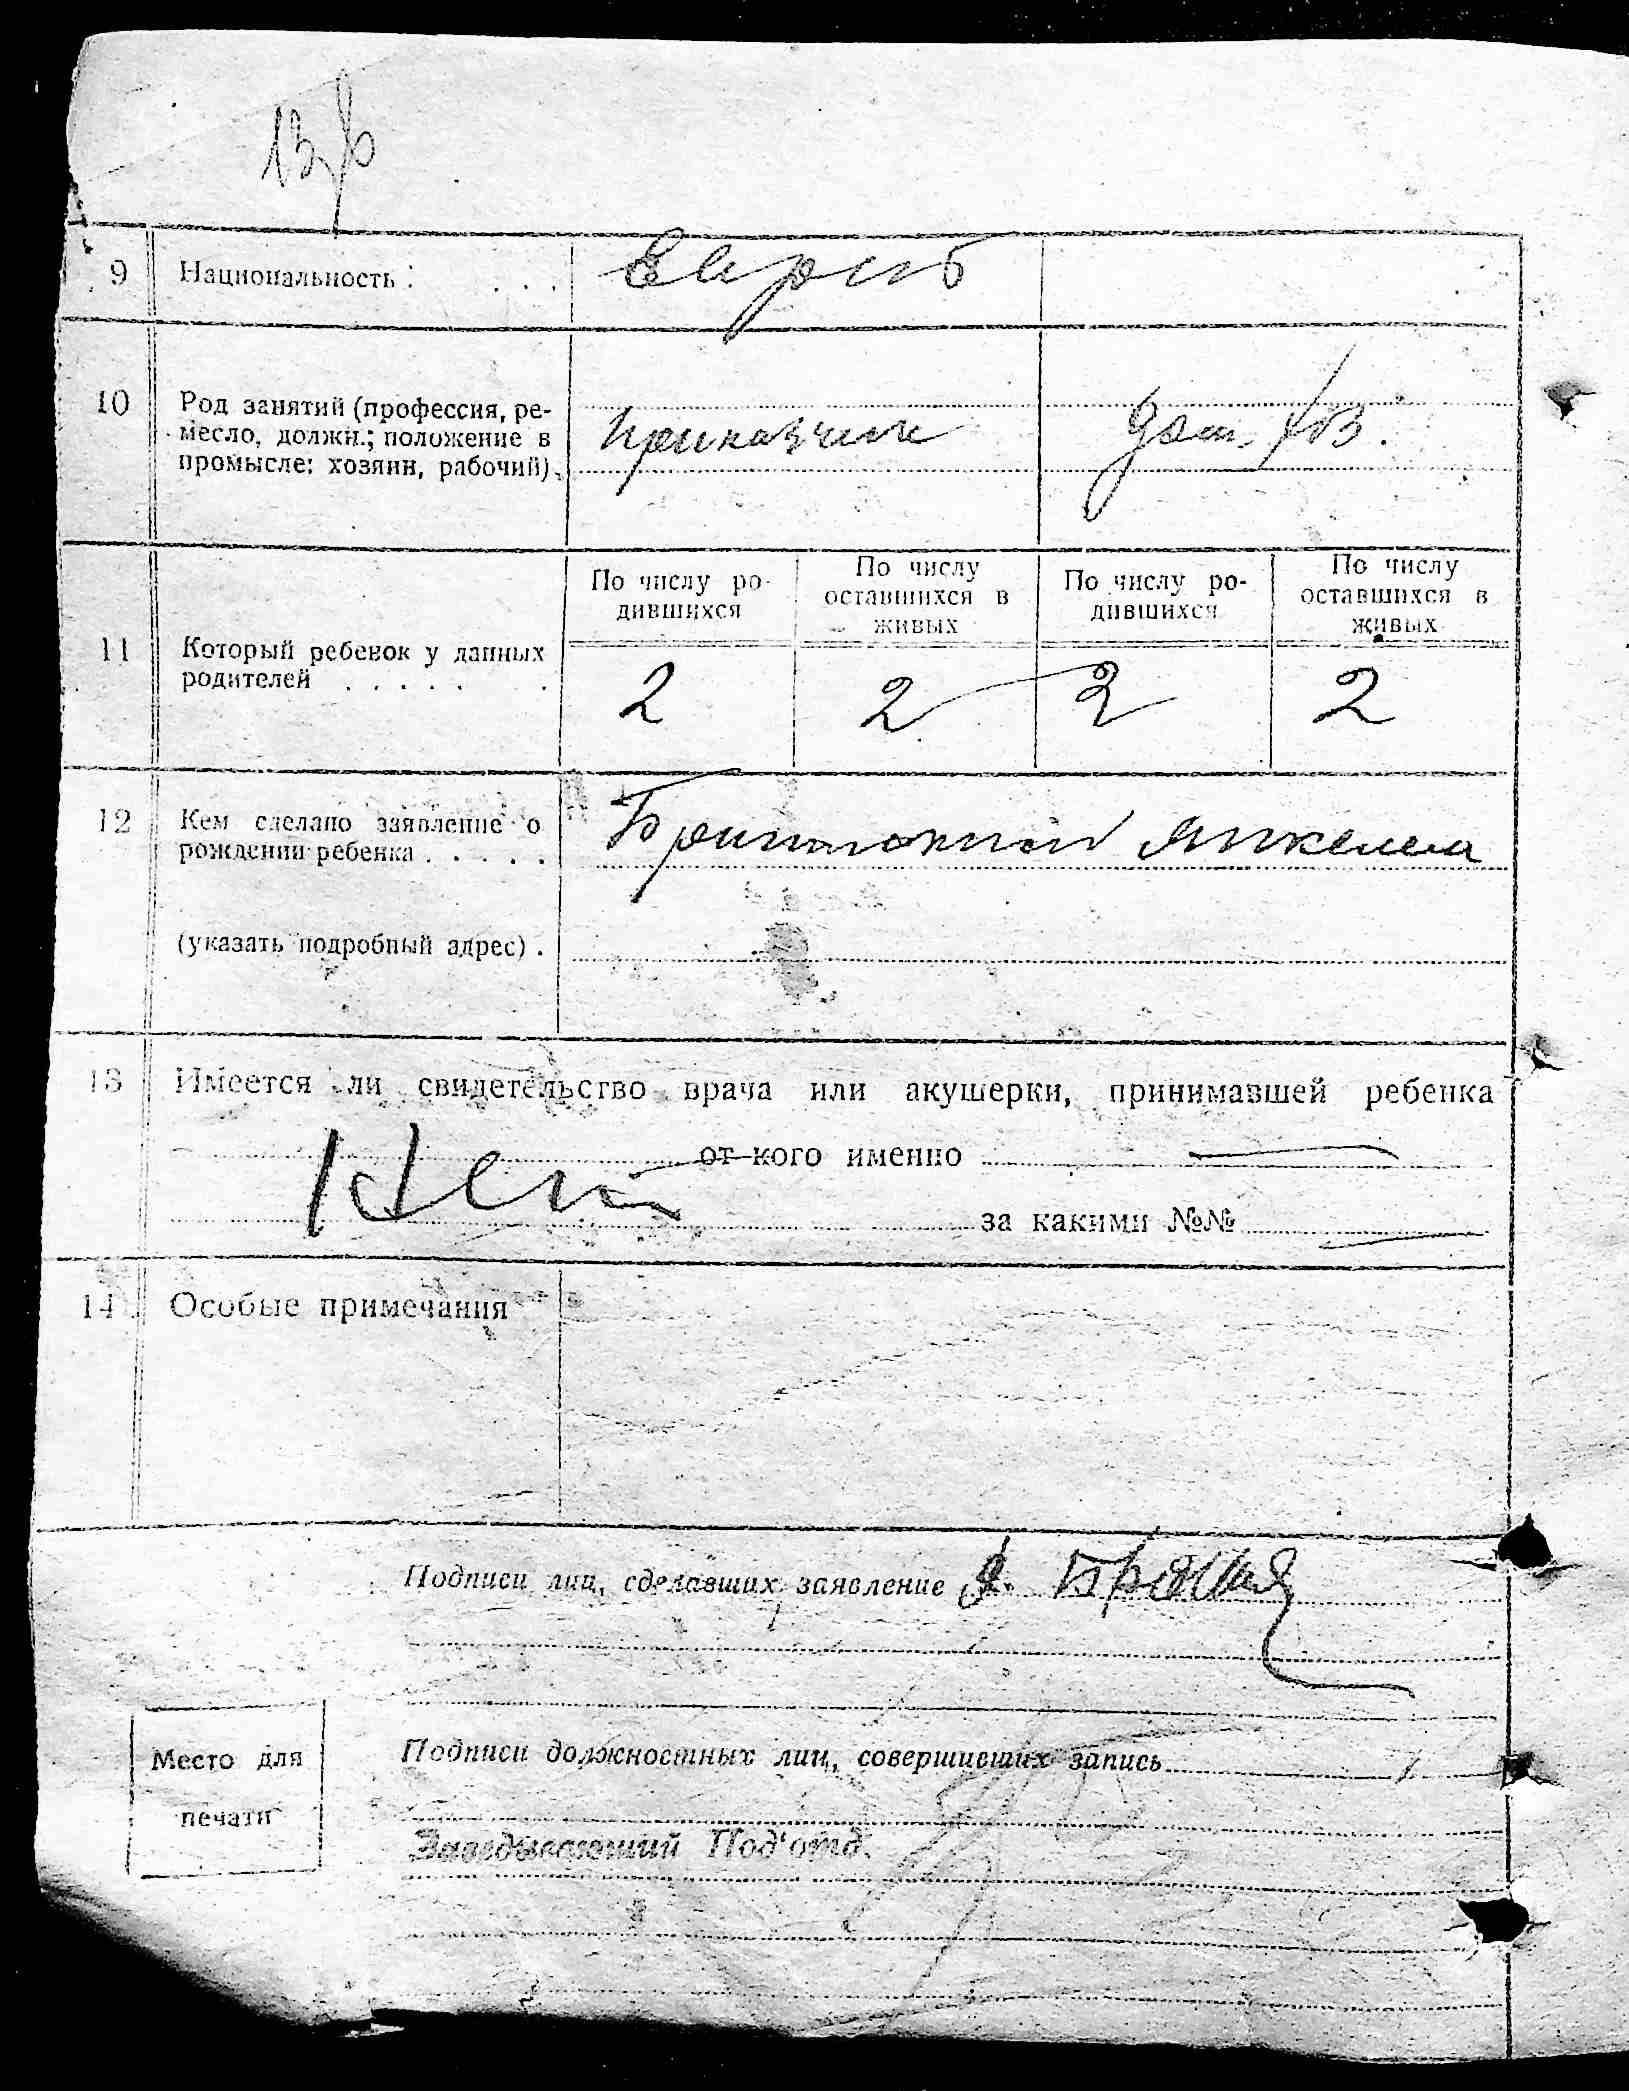 9 Национальность : . . . Евреи
10 Род занятий (профессия, ре-
месло, должн.; положение в
промысле: хозяин, рабочий).
приказчик дом. хоз.
11 Который ребенок у данных
родителей . . . . . .
По числу ро-
дившихся
По числу
оставшихся в
живых
По числу ро-
дившихся
По числу
оставшихся в
живых
2 2 2 2
12 Кем сделано заявление о
рождении ребенка . . . . .
(указать подробный адрес) .
13 Имеется ли свидетельство врача или акушерки, принимавшей ребенка
Нет от кого именно —
за какими №№ —
14 Особые примечания
Подписи лиц, сделавших заявление
Место для
печати
Подписи должностных лиц, совершивших запись
Заведывающий Под'отд.